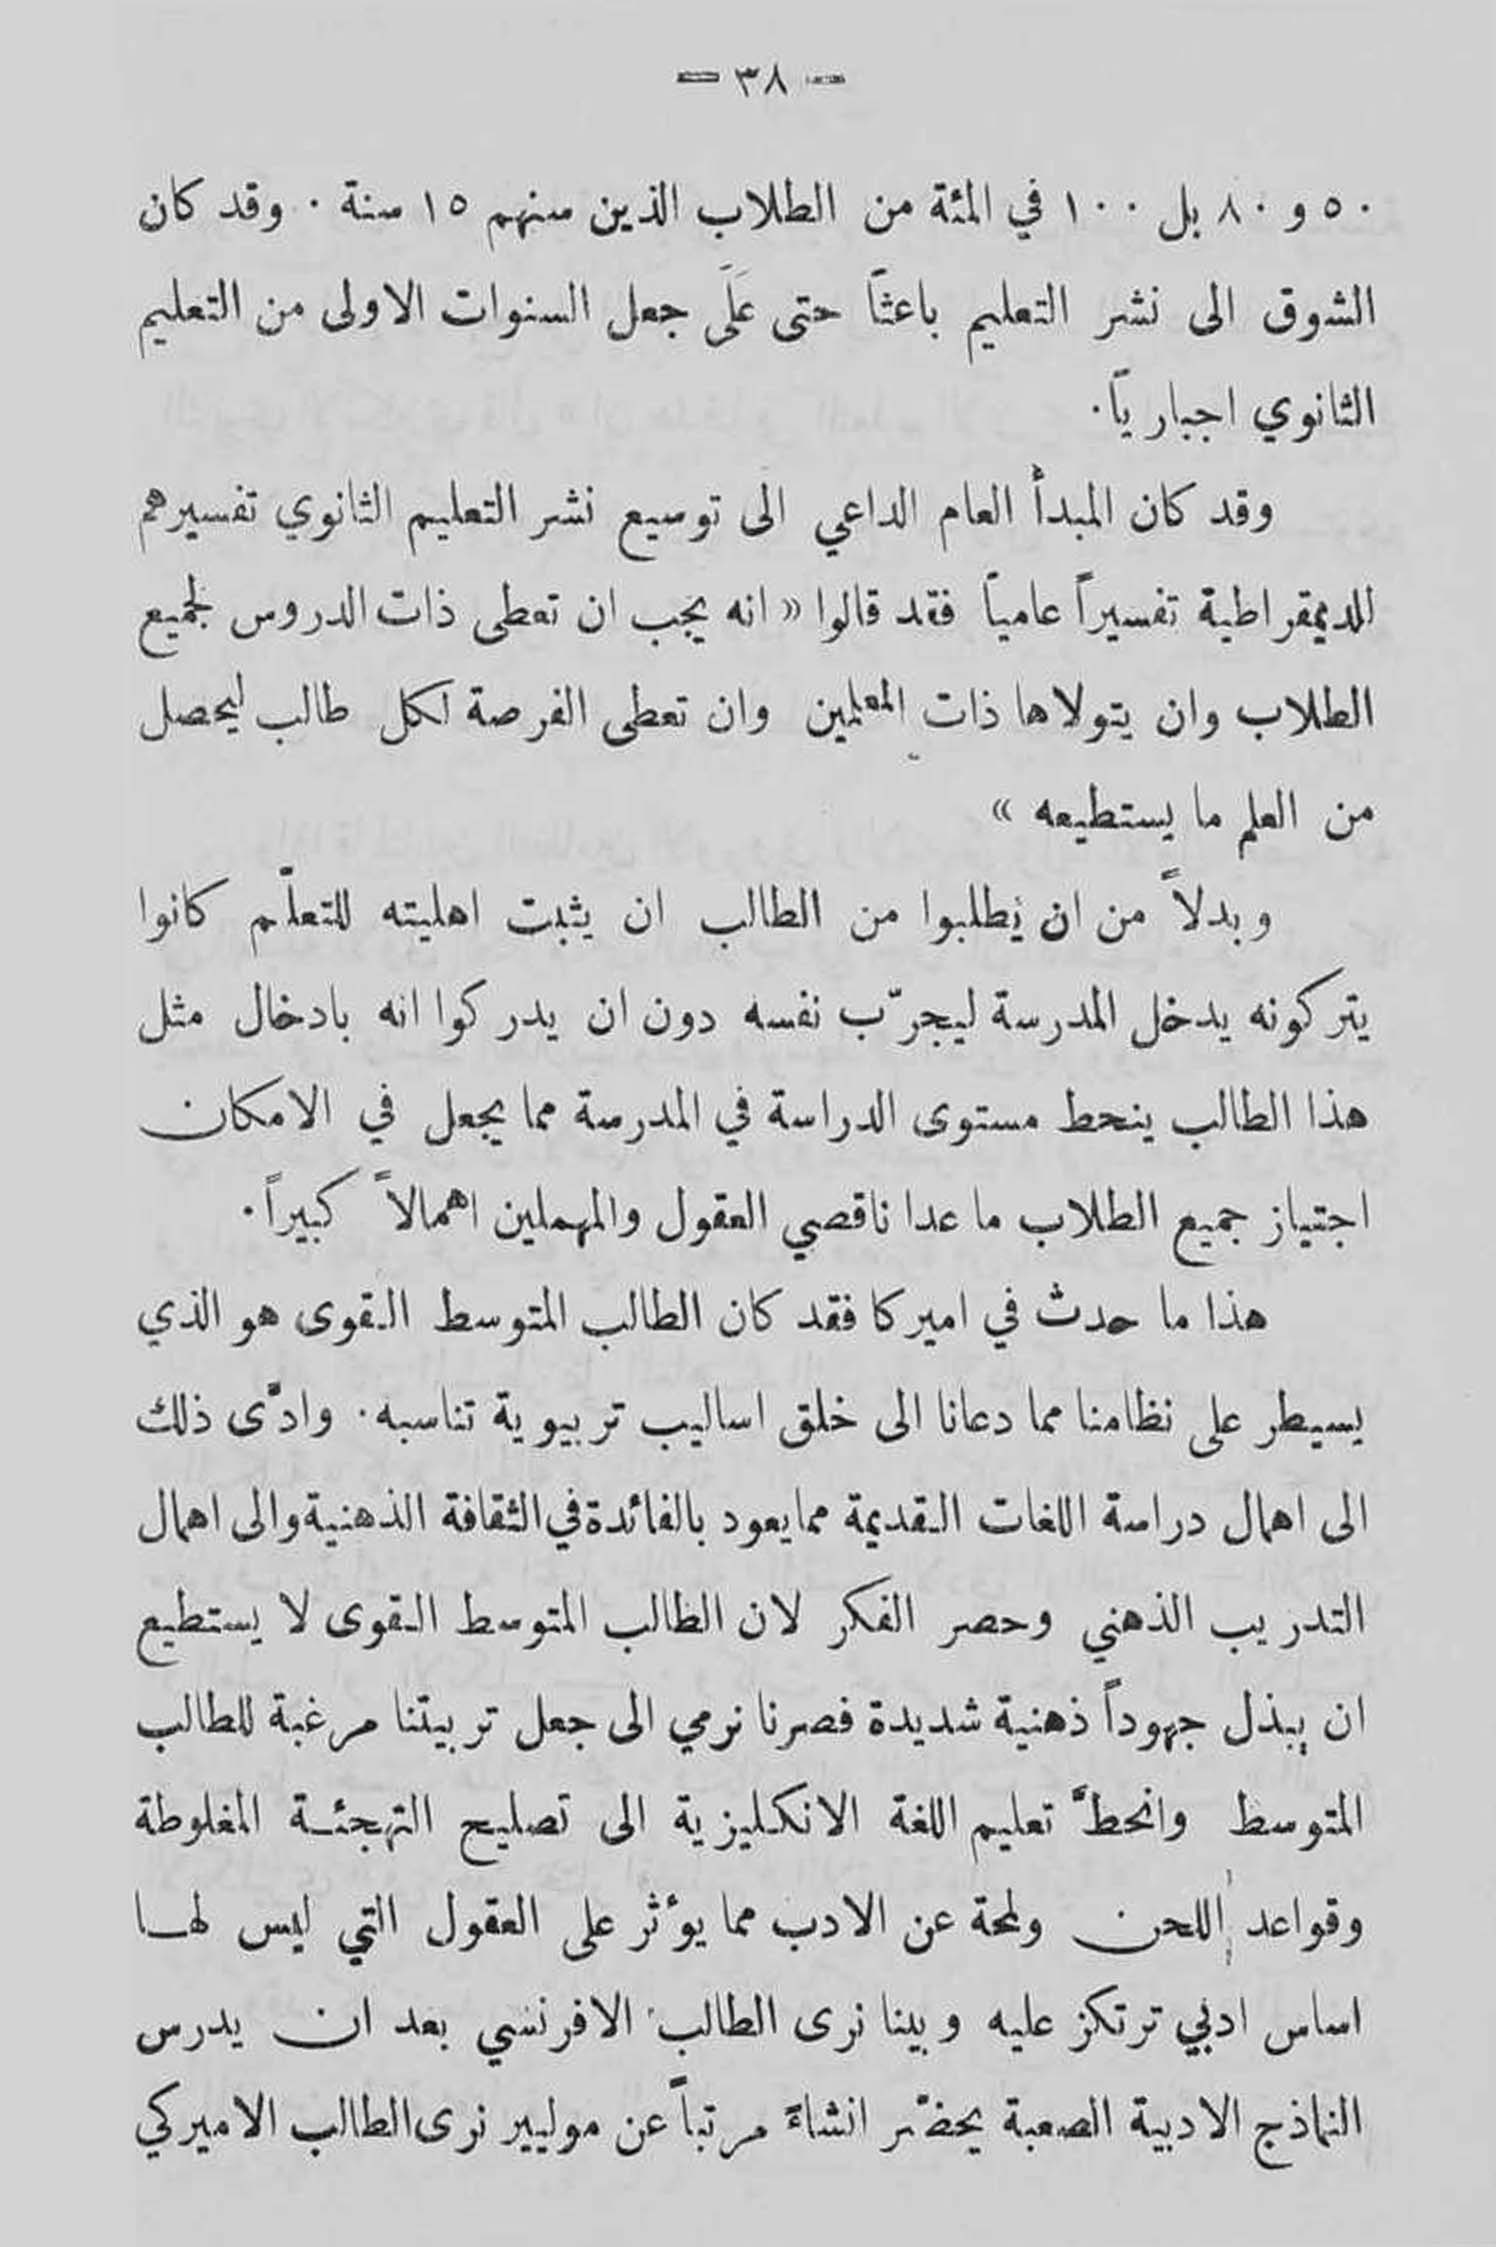 — ٣٨ —
٥٠ و ٨٠ بل ١٠٠ في المئة من الطلاب الذين سنهم ١٥ سنة . وقد كان
الشوق الى نشر التعليم باعثاً حتى عَلَى جعل السنوات الاولى من التعليم
الثانوي اجبارياً.
وقد كان المبدأ العام الداعي الى توسيع نشر التعليم الثانوي تفسيرهم
للديمقراطية تفسيراً عامياً فقد قالوا « انه يجب ان تعطى ذات الدروس لجميع
الطلاب وان يتولاها ذات المعلمين وان تعطى الفرصة لكل طالب ليحصل
من العلم ما يستطيعه »
وبدلاً من ان يطلبوا من الطالب ان يثبت اهليته للتعلّم كانوا
يتركونه يدخل المدرسة ليجرّب نفسه دون ان يدركوا انه بادخال مثل
هذا الطالب ينحط مستوى الدراسة في المدرسة مما يجعل في الامكان
اجتياز جميع الطلاب ما عدا ناقصي العقول والمهملين اهمالاً كبيراً.
هذا ما حدث في اميركا فقد كان الطالب المتوسط القوى هو الذي
يسيطر على نظامنا مما دعانا الى خلق اساليب تربيوية تناسبه. وادّى ذلك
الى اهمال دراسة اللغات القديمة مما يعود بالفائدة في الثقافة الذهنية والى اهمال
التدريب الذهني وحصر الفكر لان الطالب المتوسط القوى لا يستطيع
ان يبذل جهوداً ذهنية شديدة فصرنا نرمي الى جعل تربيتنا مرغبة للطالب
المتوسط وانحطَّ تعليم اللغة الانكليزية الى تصليح التهجئة المغلوطة
وقواعد اللحن ولمحة عن الادب مما يؤثر على العقول التي ليس لها
اساس ادبي ترتكز عليه وبينا نرى الطالب الافرنسي بعد ان يدرس
النماذج الادبية الصعبة يحضّر انشاءً مرتباً عن موليير نرى الطالب الاميركي